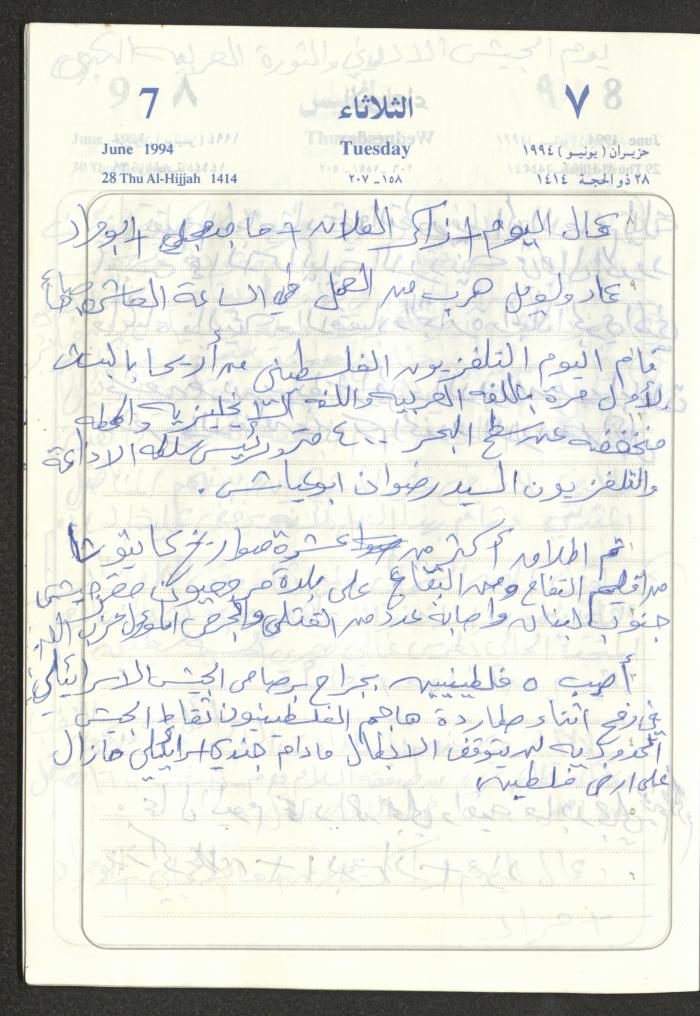 7 الثلاثاء ٧
June 1994 Tuesday حزيران (يونيو) ١٩٩٤
28 Thu Al-Hijjah 1414 ١٥٨ـ٢٠٧ ٢٨ ذو الحجة ١٤١٤
عمال اليوم + ذاكر الفلان + ماجد علي + ابو مراد
عماد ونويل هرب من العمل في الساعة العاشرة صباحاً
قام اليوم التلفزيون الفلسطيني من أريحا بالبث
لأول مرة باللغة العربية واللغة الانجليزية والمحطة
منخفضة عن سطح البحر ٤٠٠ متر ورئيس سلطة الاذاعة
والتلفزيون السيد رضوان ابو عياش .
تم اطلاق أكثر من عشرة صواريخ كاتيوشا
من اقليم التفاح ومن البقاع على بلدة مرجعيون
جنوب لبنان واصابة عدد من القتلى والجرحى المسؤول حزب الله
أصيب ٥ فلسطينيين بجراح برصاص الجيش الاسرائيلي
في رفح اثناء مطاردة هاجم الفلسطينيون نقاط الجيش
الحدودية لن يتوقف الابطال مادام جندي اسرائيلي مازال
على ارض فلسطين